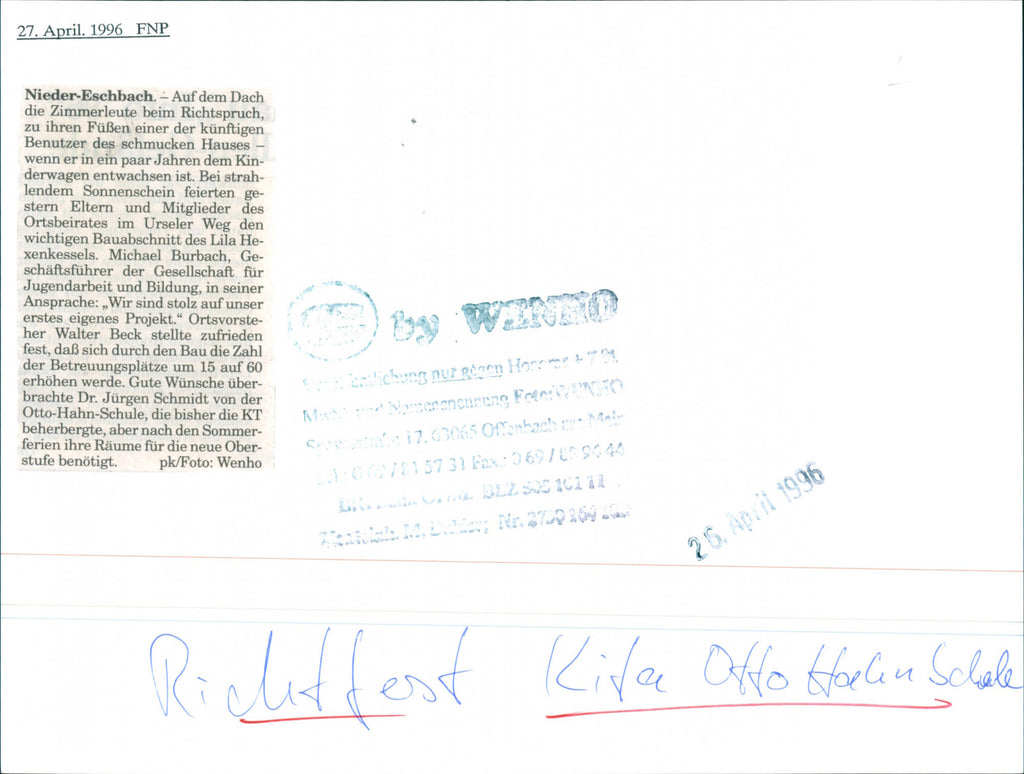 27. April. 1996 FNP
Nieder-Eschbach. – Auf dem Dach
die Zimmerleute beim Richtspruch,
zu ihren Füßen einer der künftigen
Benutzer des schmucken Hauses –
wenn er in ein paar Jahren dem Kin-
derwagen entwachsen ist. Bei strah-
lendem Sonnenschein feierten ge-
stern Eltern und Mitglieder des
Ortsbeirates im Urseler Weg den
wichtigen Bauabschnitt des Lila He-
xenkessels. Michael Burbach, Ge-
schäftsführer der Gesellschaft für
Jugendarbeit und Bildung, in seiner
Ansprache: „Wir sind stolz auf unser
erstes eigenes Projekt.“ Ortsvorste-
her Walter Beck stellte zufrieden
fest, daß sich durch den Bau die Zahl
der Betreuungsplätze um 15 auf 60
erhöhen werde. Gute Wünsche über-
brachte Dr. Jürgen Schmidt von der
Otto-Hahn-Schule, die bisher die KT
beherbergte, aber nach den Sommer-
ferien ihre Räume für die neue Ober-
stufe benötigt. pk/Foto: Wenho
by WENHO
Veröffentlichung nur gegen Honorar + 7 %
MwSt. und Namensnennung Foto: WENHO
17, 63065 Offenbach am Main
Tel.: 0 69 / 81 57 31 Fax.: 0 69 /
BLZ 505 101 11
Nr.
26. April 1996
Richtfest Kita Otto Hahn Schule